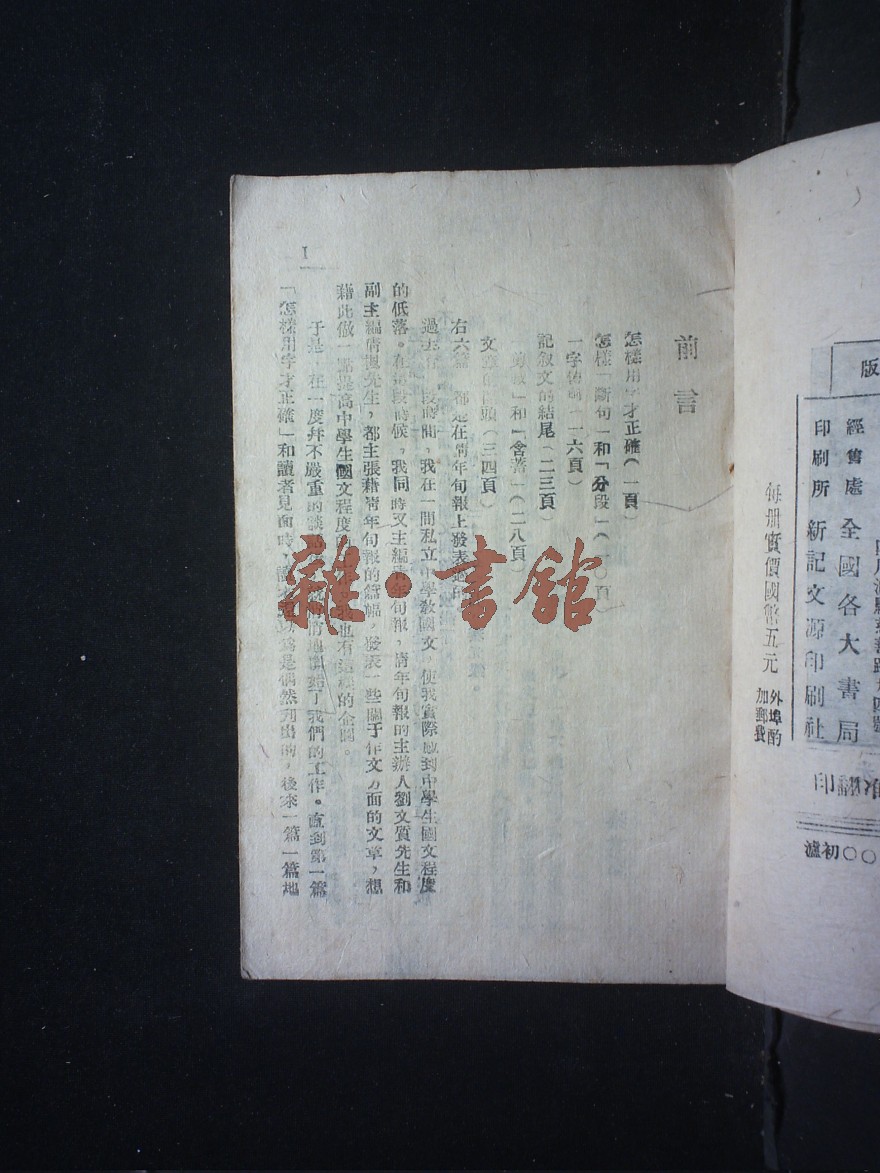 前言
怎樣用字才正確(一頁)
怎樣「斷句」和「分段」(一〇頁)
一字傳神(一六頁)
記叙文的結尾(二三頁)
和「含蓄」(二八頁)
文章的開頭(三四頁)
右六篇,都是在靑年旬報上發表過的
過去有一段時間,我在一間私立中學敎國文,使我實際感到中學生國文程度
的低落。在這段時候,我同時又主編靑年旬報,靑年旬報的主辦人劉文質先生和
副主編 先生,都主張藉靑年旬報的篇幅,發表一些關于作文方面的文章,想
藉此做一點提高中學生國文程度 也有這樣的企圖。
于是,在一度幷不嚴重的談話 地開始了我們的工作。直到第一篇
「怎樣用字才正確」和讀者見面時, 爲是偶然刋出的,後來一篇一篇地
I
雜·書館
版
經售處 全國各大書局
印刷所 新記文源印刷社
每册實價國幣五元 外埠酌加郵費
初〇〇